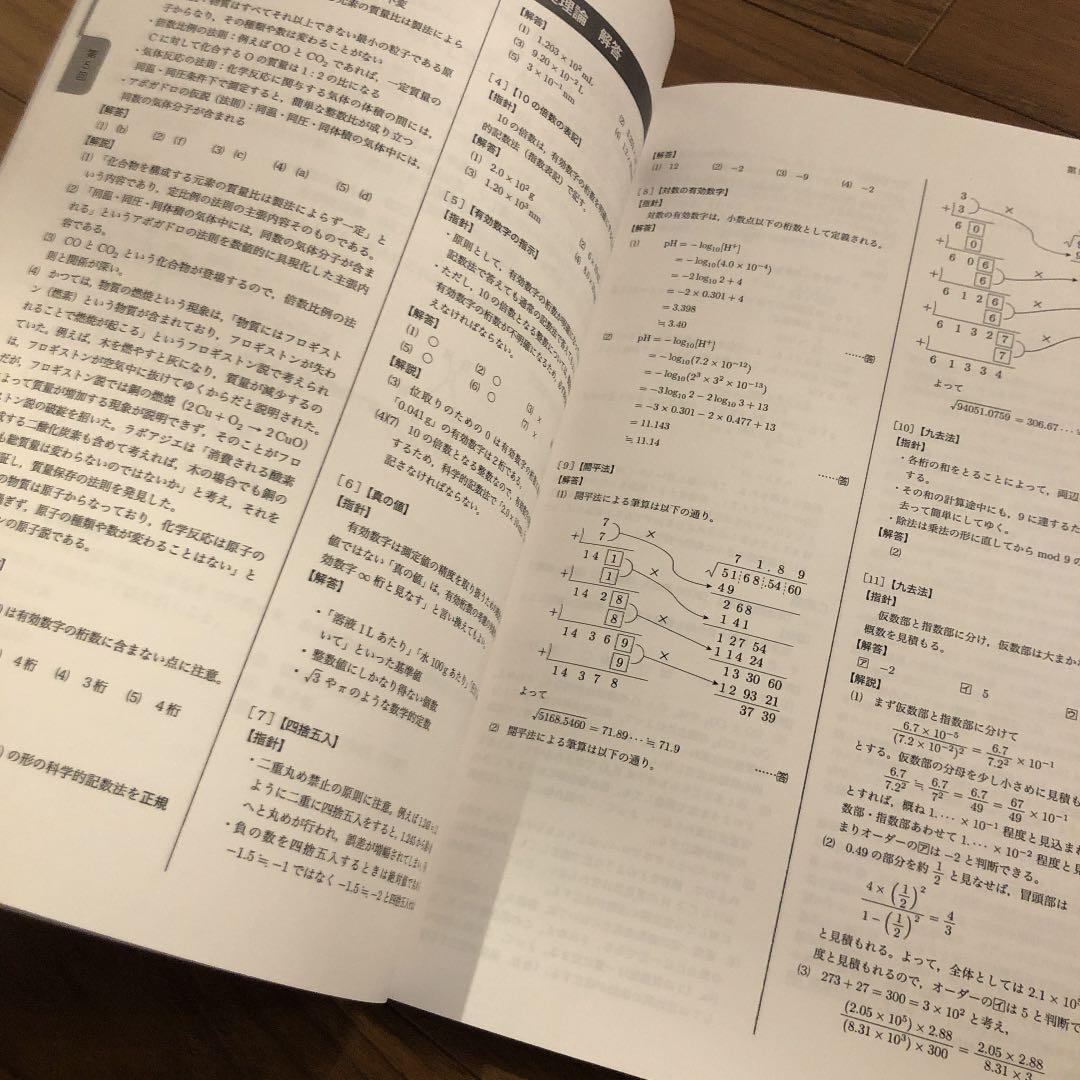 元素の質量比は製法によら
・物質はすべてそれ以上できない最小の粒子である原
子からなり、その種類や数は変わることがない
・倍数比例の法則:例えば CO と CO₂ であれば、一定質量の
C に対して化合する O の質量は 1:2 の比になる
・気体反応の法則:化学反応に関与する気体の体積の間には、
同温・同圧条件下で測定すると、簡単な整数比が成り立つ
・アボガドロの仮説(法則):同温・同圧・同体積の気体中には、
同数の気体分子が含まれる
【解答】
(1) (b) (2) (f) (3) (c) (4) (a) (5) (d)
【解説】
(1) 「化合物を構成する元素の質量比は製法によらず一定」と
いう内容であり、定比例の法則の主張内容そのものである。
(2) 「同温・同圧・同体積の気体中には、同数の気体分子が含ま
れる」というアボガドロの法則を数値的に具現化した主張内
容である。
(3) CO と CO₂ という化合物が登場するので、倍数比例の法
則と関係が深い。
(4) かつては、物質の燃焼という現象は、「物質にはフロギスト
ン(燃素)という物質が含まれており、フロギストンが失わ
れることで燃焼が起こる」というフロギストン説で考えられ
ていた。例えば、木を燃やすと灰になり、質量が減少するの
は、フロギストンが空気中に抜けてゆくからだと説明された。
だが、フロギストン説では銅の燃焼 (2Cu + O₂ → 2CuO)
よって質量が増加する現象が説明できず、そのことがフロ
ストン説の破綻を招いた。ラボアジエは「消費される酸素
成する二酸化炭素も含めて考えれば、木の場合でも銅の
も総質量は変わらないのではないか」と考え、それを
証し、質量保存の法則を発見した。
の物質は原子からなっており、化学反応は原子の
過ぎず、原子の種類や数が変わることはない」と
ンの原子説である。
は有効数字の桁数に含まない点に注意。
4 桁 (4) 3 桁 (5) 4 桁
の形の科学的記数法を正規
第5回
理論 解答
【解答】
(1) 1.203 × 10² mL
(3) 9.20 × 10⁻² L
(5) 3 × 10⁻¹ nm
[4]【10 の倍数の表記】
【指針】
10 の倍数は、有効数字の桁数を明確に
的記数法(指数表記)で記す。
【解答】
(1) 2.0 × 10² g
(3) 1.20 × 10³ nm
[5]【有効数字の指示】
【指針】
・原則として、有効数字の桁数が明確に
記数法で答えても通常の記数法で答えて
・ただし、10 の倍数となる整数については
有効数字の桁数が不明確になるため、
えなければならない。
【解答】
(1) ○ (2) ○ (3) ×
(5) ○ (6) ○ (7) ×
【解説】
(3) 位取りのための 0 は有効数字の桁数
「0.041g」の有効数字は 2 桁である。
(4)(7) 10 の倍数となる整数なので、有効
するため、科学的記数法で「2.0 ×
記さなければならない。
[6]【真の値】
【指針】
有効数字は測定値の精度を取り扱うため
値ではない「真の値」は、有効桁数の考慮が
効数字 ∞ 桁と見なす」と言い換えてもよい。
【解答】
・「溶液 1L あたり」「水 100g あたり」
いて」といった基準値
・整数値にしかなり得ない個数
・√3 や π のような数学的定数
[7]【四捨五入】
【指針】
・二重丸め禁止の原則に注意。例えば
ように二重に四捨五入をすると、1.245 から
へと丸めが行われ、誤差が増幅されてしまい
・負の数を四捨五入するときは絶対値で
−1.5 ≒ −1 ではなく −1.5 ≒ −2 と四捨五入
【解答】
(1) 12 (2) −2 (3) −9 (4) −2
[8]【対数の有効数字】
【指針】
対数の有効数字は、小数点以下の桁数として定義される。
【解答】
(1) pH = − log₁₀[H⁺]
= − log₁₀(4.0 × 10⁻⁴)
= −2 log₁₀ 2 + 4
= −2 × 0.301 + 4
= 3.398
≒ 3.40
……(答)
(2) pH = − log₁₀[H⁺]
= − log₁₀(7.2 × 10⁻¹²)
= − log₁₀(2³ × 3² × 10⁻¹³)
= −3 log₁₀ 2 − 2 log₁₀ 3 + 13
= −3 × 0.301 − 2 × 0.477 + 13
= 11.143
≒ 11.14
……(答)
[9]【開平法】
【解答】
(1) 開平法による筆算は以下の通り。
7
+ 7 ×
14 1
+ 1 ×
14 2 8
+ 8 ×
14 3 6 9
+ 9 ×
14 3 7 8
7 1 . 8 9
√51 68 . 54 60
49
2 68
1 41
1 27 54
1 14 24
13 30 60
12 93 21
37 39
よって
√5168.5460 = 71.89… ≒ 71.9
……(答)
(2) 開平法による筆算は以下の通り。
3
+ 3 ×
6 0
+ 0
6 0 6
+ 6 ×
6 1 2 6
+ 6 ×
6 1 3 2 7
+ 7
6 1 3 3 4
よって
√94051.0759 = 306.67…
[10]【九去法】
【指針】
・各桁の和をとることによって、両辺
する。
・その和の計算途中にも、9 に達するた
去って簡単にしてゆく。
・除法は乗法の形に直してから mod 9 の
【解答】
(2)
[11]【九去法】
【指針】
仮数部と指数部に分け、仮数部は大まかな
概数を見積もる。
【解答】
ア −2 イ 5 ウ
【解説】
(1) まず仮数部と指数部に分けて
6.7 × 10⁻⁵ / (7.2 × 10⁻²)² = 6.7 / 7.2² × 10⁻¹
とする。仮数部の分母を少し小さめに見積も
6.7 / 7.2² ≒ 6.7 / 7² = 6.7 / 49 = 67 / 49 × 10⁻¹
とすれば、概ね 1.… × 10⁻¹ 程度と見込まれ
数部・指数部あわせて 1.… × 10⁻² 程度と見
まりオーダーのアは −2 と判断できる。
(2) 0.49 の部分を約 1/2 と見なせば、冒頭部は
4 × (1/2)² / 1 − (1/2)² = 4/3
と見積もれる。よって、全体としては 2.1 × 10⁵
度と見積もれるので、オーダーのイは 5 と判断で
(3) 273 + 27 = 300 = 3 × 10² と考え、
(2.05 × 10⁵) × 2.88 / (8.31 × 10³) × 300 = 2.05 × 2.88 / 8.31 × 3